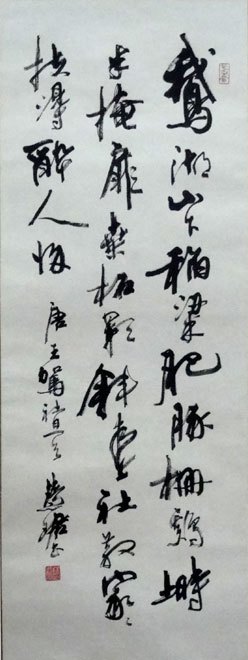 鵝湖山下稻粱肥豚柵鷄塒
半掩扉桑柘影斜春社散家〻
扶得醉人歸 唐王駕